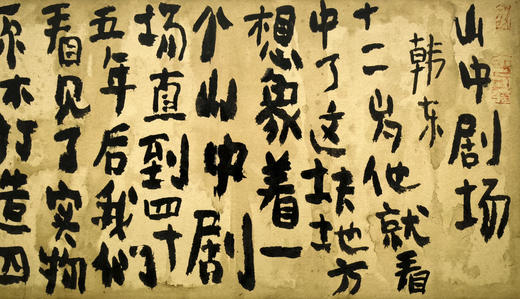 山中剧场
韩东
十二岁他就看
中了这块地方
想象着一
个山中剧
场直到四十
五年后我们
看见了实物
原木打造四